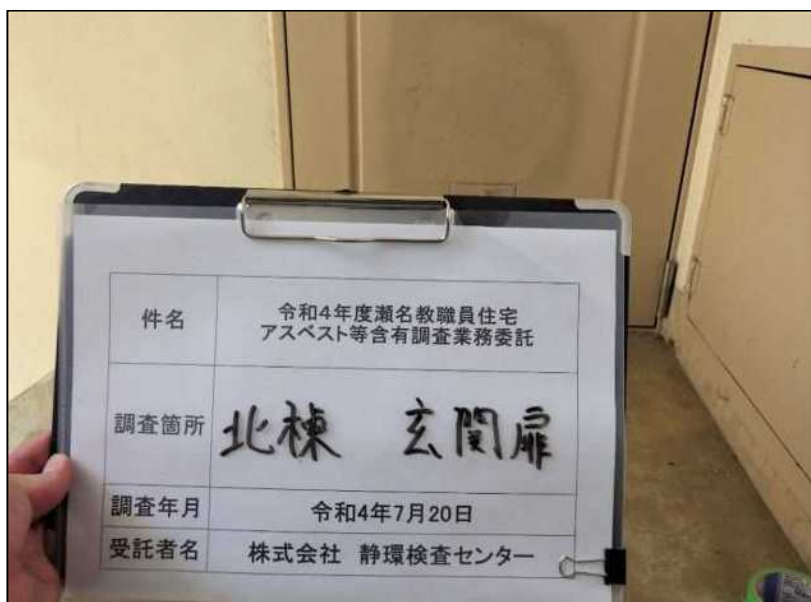 件名
令和4年度瀬名教職員住宅
アスベスト等含有調査業務委託
調査箇所
北棟 玄関扉
調査年月
令和4年7月20日
受託者名
株式会社 静環検査センター